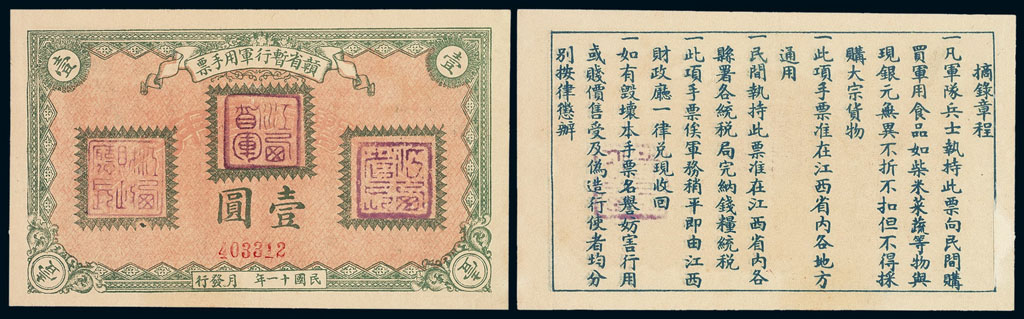 贛省暫行軍用手票
壹
壹
壹圓
403312
壹
壹
民國十一年 月發行
摘錄章程
一凡軍隊兵士執持此票向民間購
買軍用食品如柴米菜蔬等物與
現銀元無異不折不扣但不得採
購大宗貨物
一此項手票准在江西省內各地方
通用
一民間執持此票准在江西省內各
縣署各統稅局完納錢糧統稅
一此項手票俟軍務稍平即由江西
財政廳一律兌現收回
一如有毀壞本手票名譽妨害行用
或賤價售受及偽造行使者均分
別按律懲辦